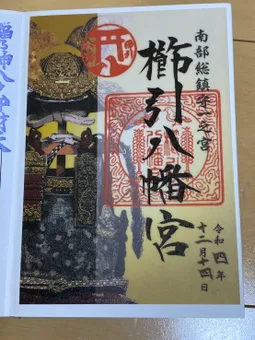 南部総鎮守一之宮
櫛引八幡宮
令和四年
十二月十四日